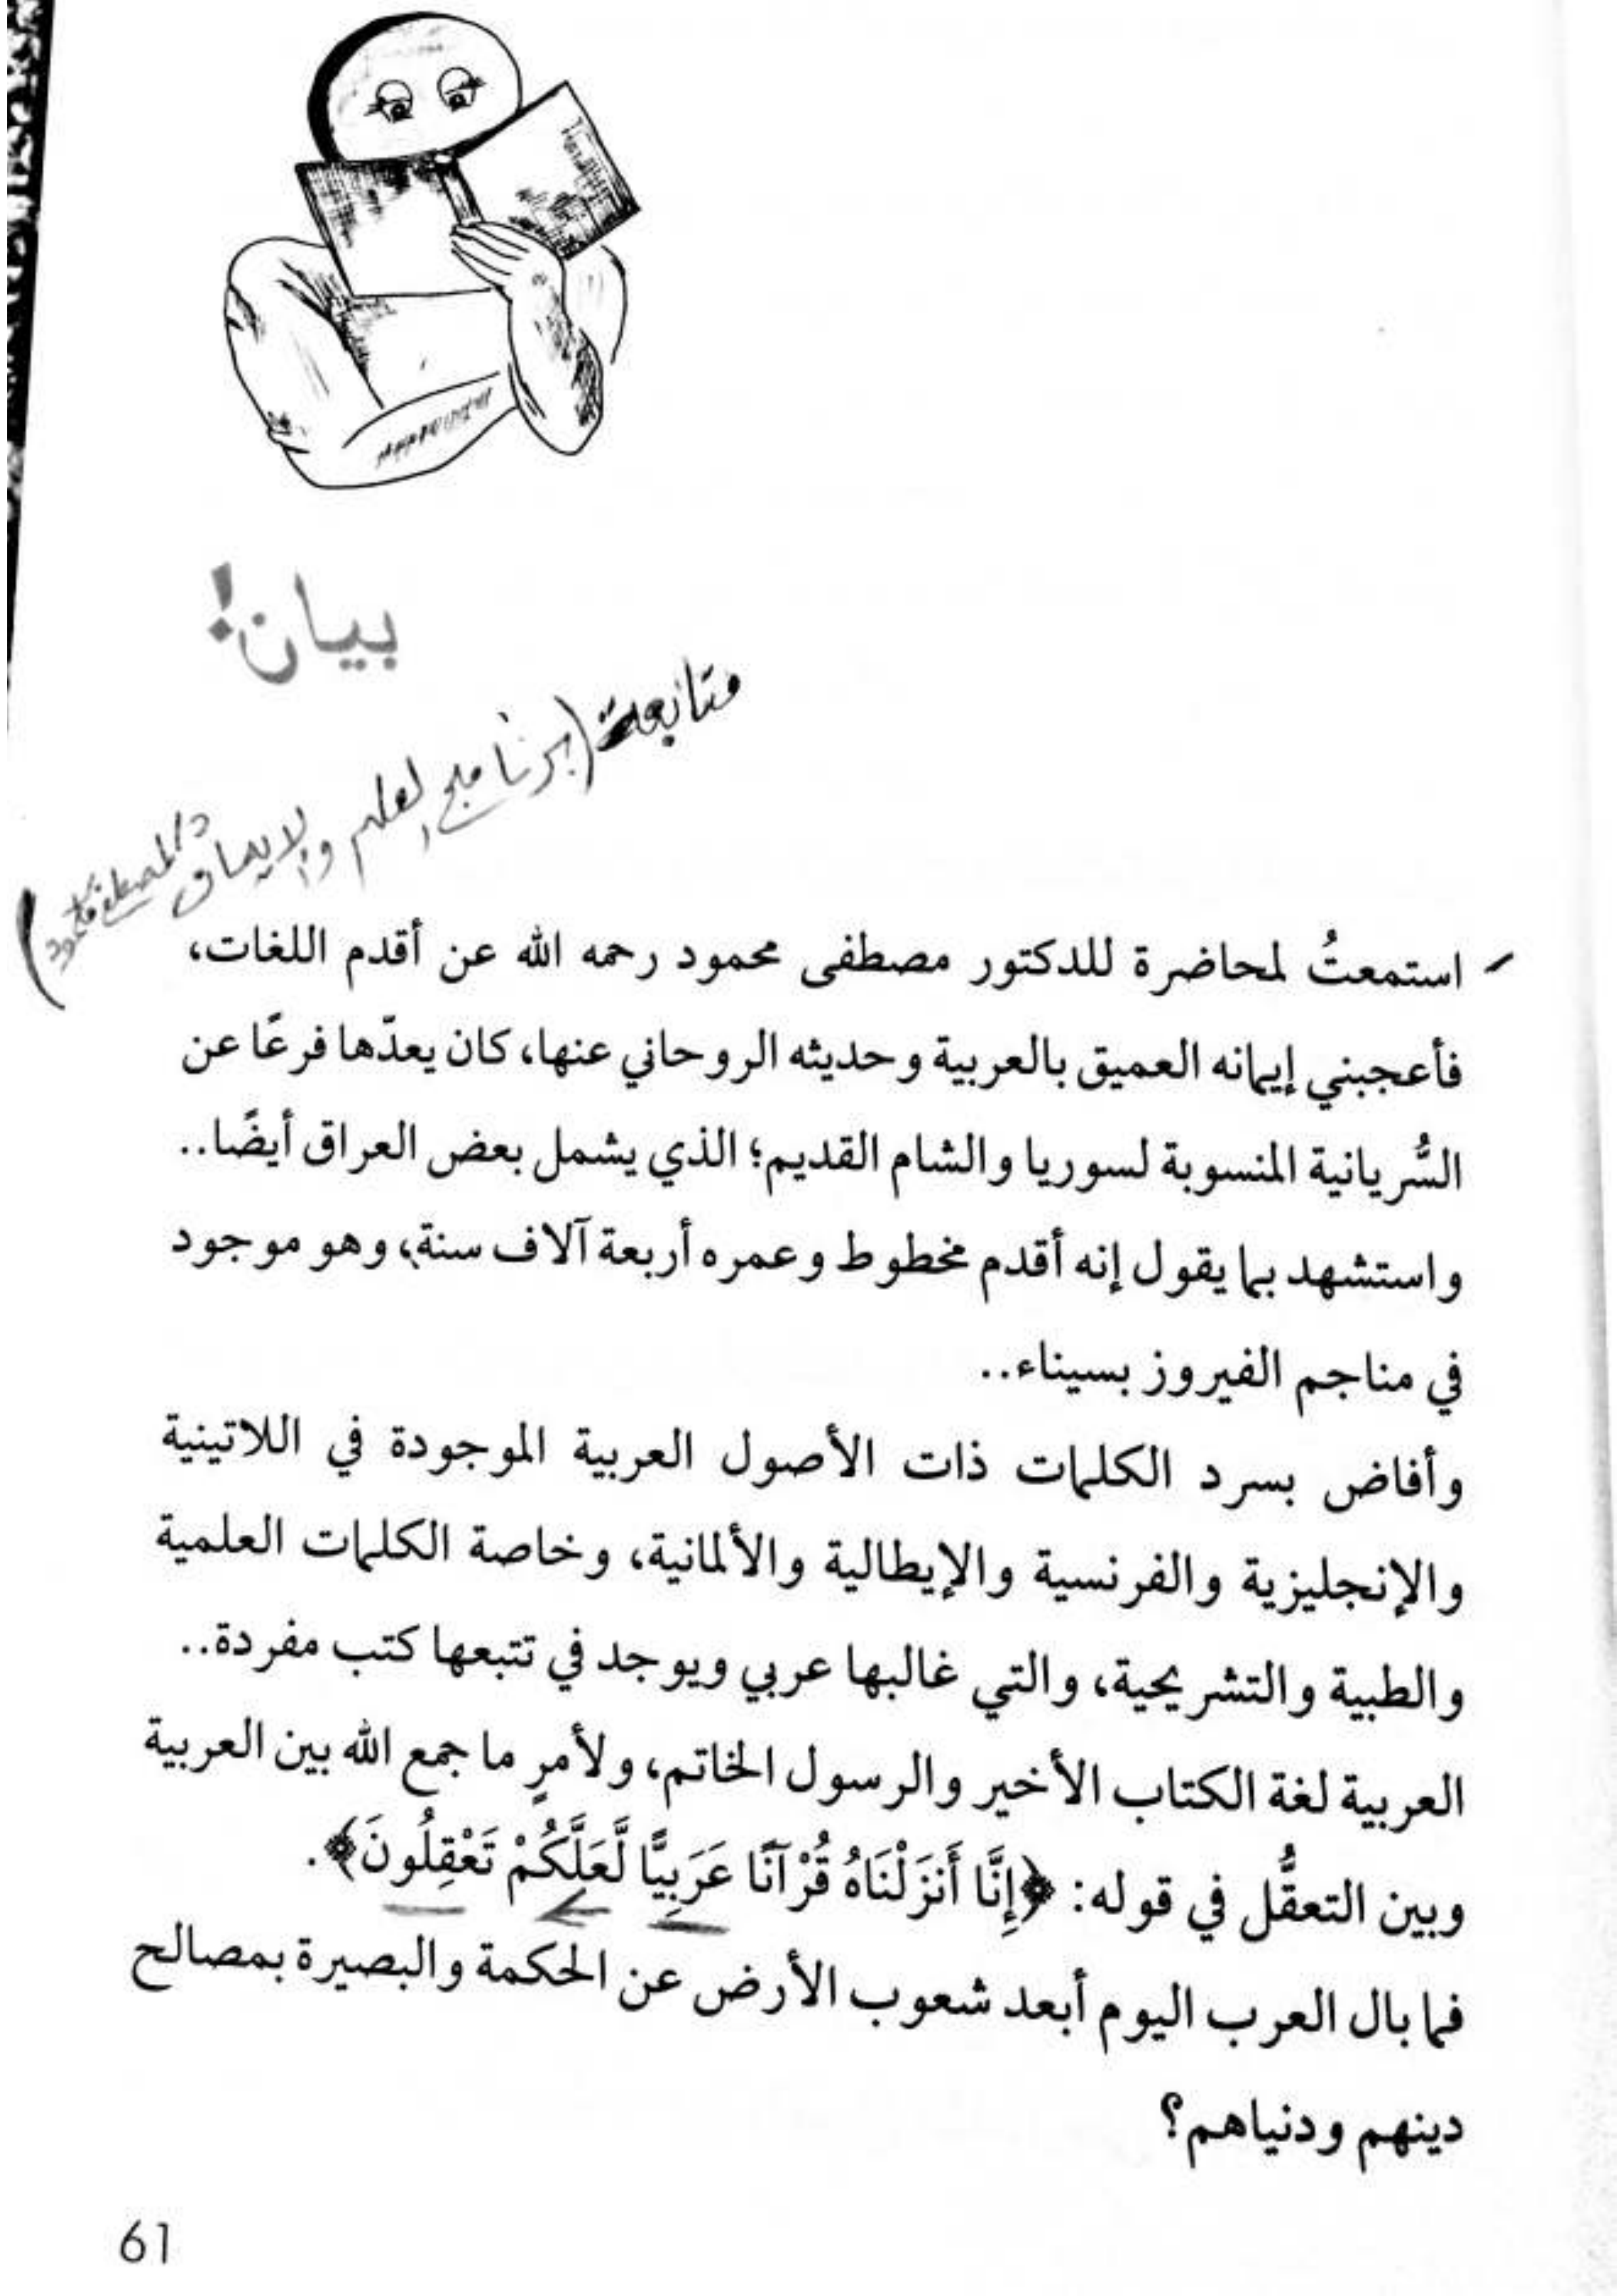 بيان!
متابعة (برنامج العلم والإيمان
د/ مصطفى محمود)
استمعتُ لمحاضرة للدكتور مصطفى محمود رحمه الله عن أقدم اللغات،
فأعجبني إيمانه العميق بالعربية وحديثه الروحاني عنها، كان يعدّها فرعًا عن
السُّريانية المنسوبة لسوريا والشام القديم؛ الذي يشمل بعض العراق أيضًا..
واستشهد بما يقول إنه أقدم مخطوط وعمره أربعة آلاف سنة، وهو موجود
في مناجم الفيروز بسيناء..
وأفاض بسرد الكلمات ذات الأصول العربية الموجودة في اللاتينية
والإنجليزية والفرنسية والإيطالية والألمانية، وخاصة الكلمات العلمية
والطبية والتشريحية، والتي غالبها عربي ويوجد في تتبعها كتب مفردة..
العربية لغة الكتاب الأخير والرسول الخاتم، ولأمرٍ ما جمع الله بين العربية
وبين التعقُّل في قوله: ﴿إِنَّا أَنزَلْنَاهُ قُرْآنًا عَرَبِيًّا لَّعَلَّكُمْ تَعْقِلُونَ﴾.
فما بال العرب اليوم أبعد شعوب الأرض عن الحكمة والبصيرة بمصالح
دينهم ودنياهم؟
61